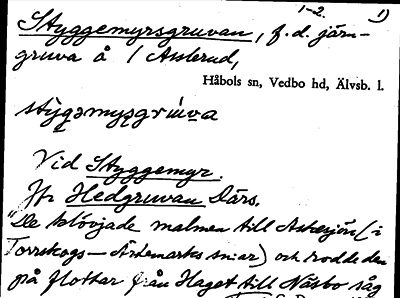 1-2. 1)
Styggemyrsgruvan, f.d. järn-
gruva å 1 Asslerud,
Håbols sn, Vedbo hd, Älvsb. l.
Vid Styggemyr.
Jfr Hedgruvan Därs.
"De klövjade malmen till Ankersjön (i
Torrskogs - Ärtemarks sn:er) och rodde den
på flottar från Haget till Näsbo såg